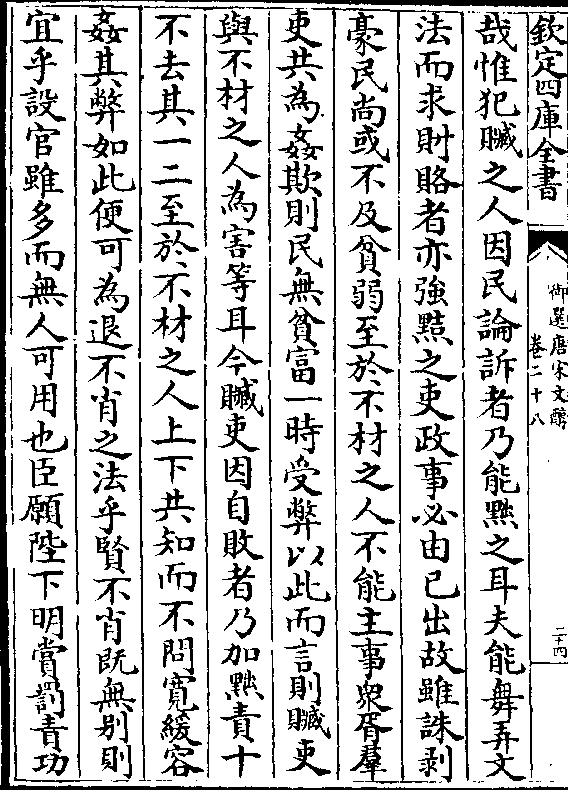 欽定四庫全書
御選唐宋文醇
卷二十八
二十四
哉惟犯贓之人因民論訴者乃能黜之耳夫能舞弄文
法而求財賂者亦強黠之吏政事必由己出故雖誅剥
豪民尚或不及貧弱至於不材之人不能主事衆胥羣
吏共為姦欺則民無貧富一時受弊以此而言則贓吏
與不材之人為害等耳今贓吏因自敗者乃加黜責十
不去其一二至於不材之人上下共知而不問寛緩容
姦其弊如此便可為退不肖之法乎賢不肖既無别則
宜乎設官雖多而無人可用也臣願陛下明賞罰責功